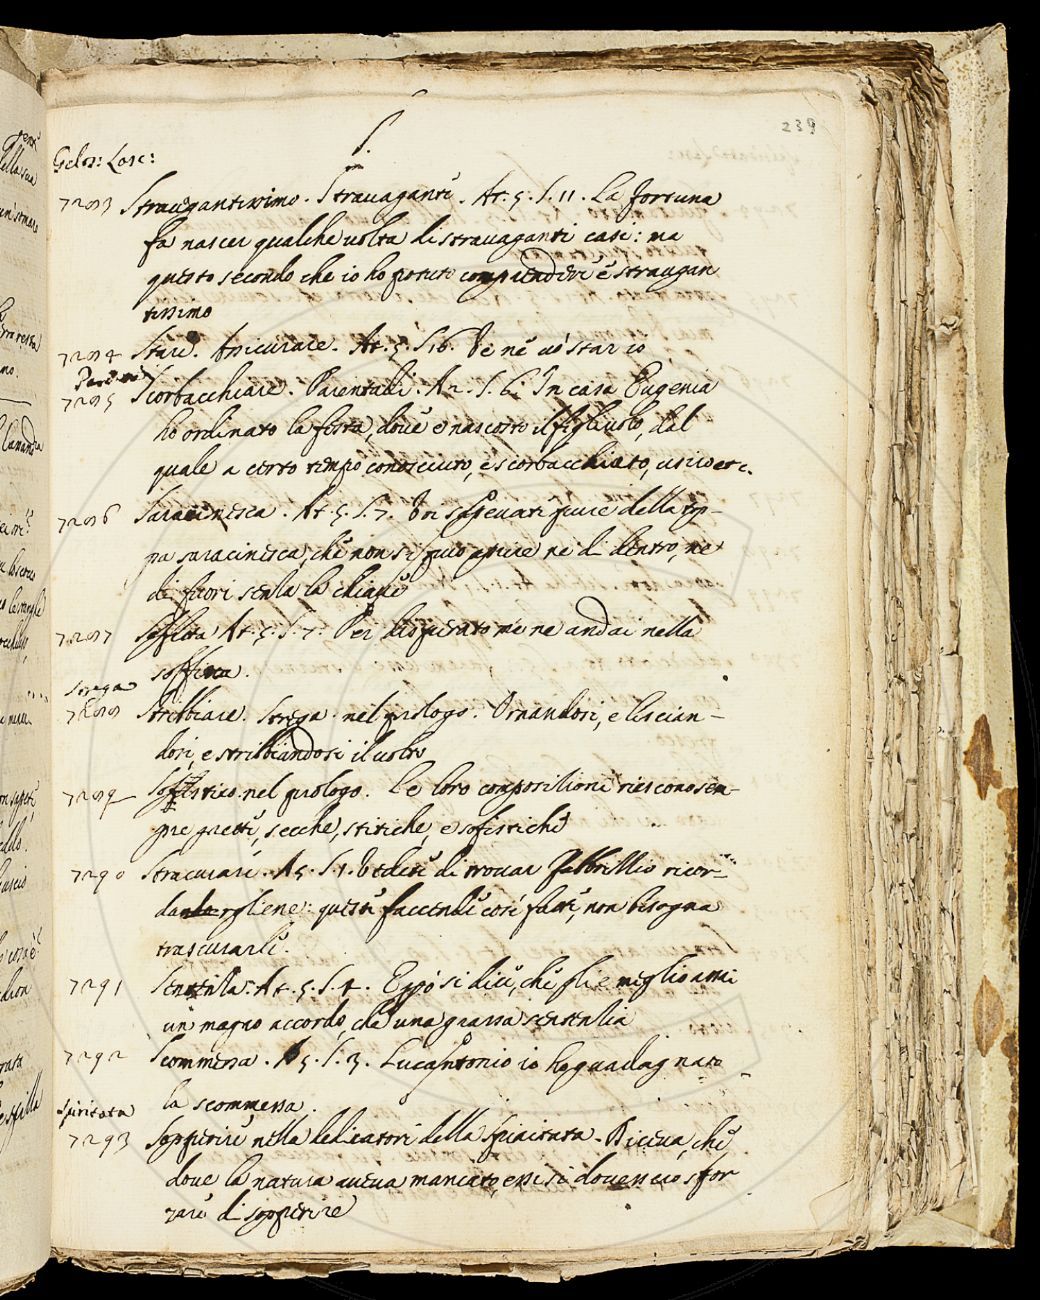 239
S.
Gelos: Lasc:
7283 Stravagantissimo. Stravaganti. At. 5. S. 11. La fortuna
fa nascer qualche volta di stravaganti casi: ma
questo secondo che io ho potuto comprendere è stravagan
tissimo
7284 Stare. Assicurare. At. 5. S. 16. Ve ne vo' star io
Parent.
7285 Scorbacchiare. Parentadi. A 2. S. 6. In casa Eugenia
ho ordinato la festa, dove è nascosto il figliuolo, dal
quale a certo tempo conosciuto, e scorbacchiato, etc.
7286 Saracinesca. At. 5. S. 7. sapevate pure della top-
pa saracinesca, che non si può aprire ne di dentro, ne
di fuori senza la chiave
7287 Soffitta At. 5. S. 7. Per disperato me ne andai nella
soffitta.
Strega
7288 Stribbiare. Strega nel prologo. Ornandosi, e liscian-
dosi, e stribbiandosi il volto
7289 Sofistico nel prologo. Le loro composizioni riescono sem-
pre grette, secche, stitiche, e sofistiche
7290 Stracurare. A 5. S. 1. Vedete di trovar Fabbrizio ricor-
dargliene: queste faccende così fatte, non bisogna
trascurarle.
7291 Sentenza. At. 5. S. 4. E però si dice, che gli è meglio
un magro accordo, che una grassa sentenzia
7292 Scommessa. A 5. S. 3. Lucantonio io ho guadagnato
la scommessa.
Spiritata
7293 Sopperire nella dedicatori della Spiritata. Diceva, che
dove la natura aveva mancato, essi si dovessero sfor
zare di sopperire